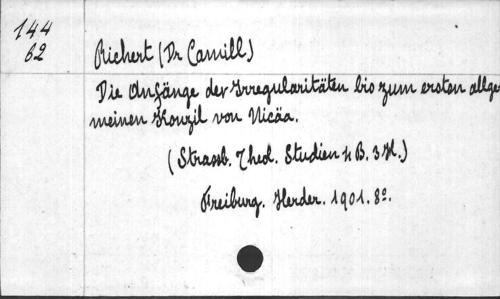 144
62
Richert (Dr Camill)
Die Anfänge der Irregularitäten bis zum ersten allge
meinen Konzil von Nicäa.
(Strassb. Theol. Studien 4 B. 3 H.)
Freiburg. Herder. 1901. 8°.